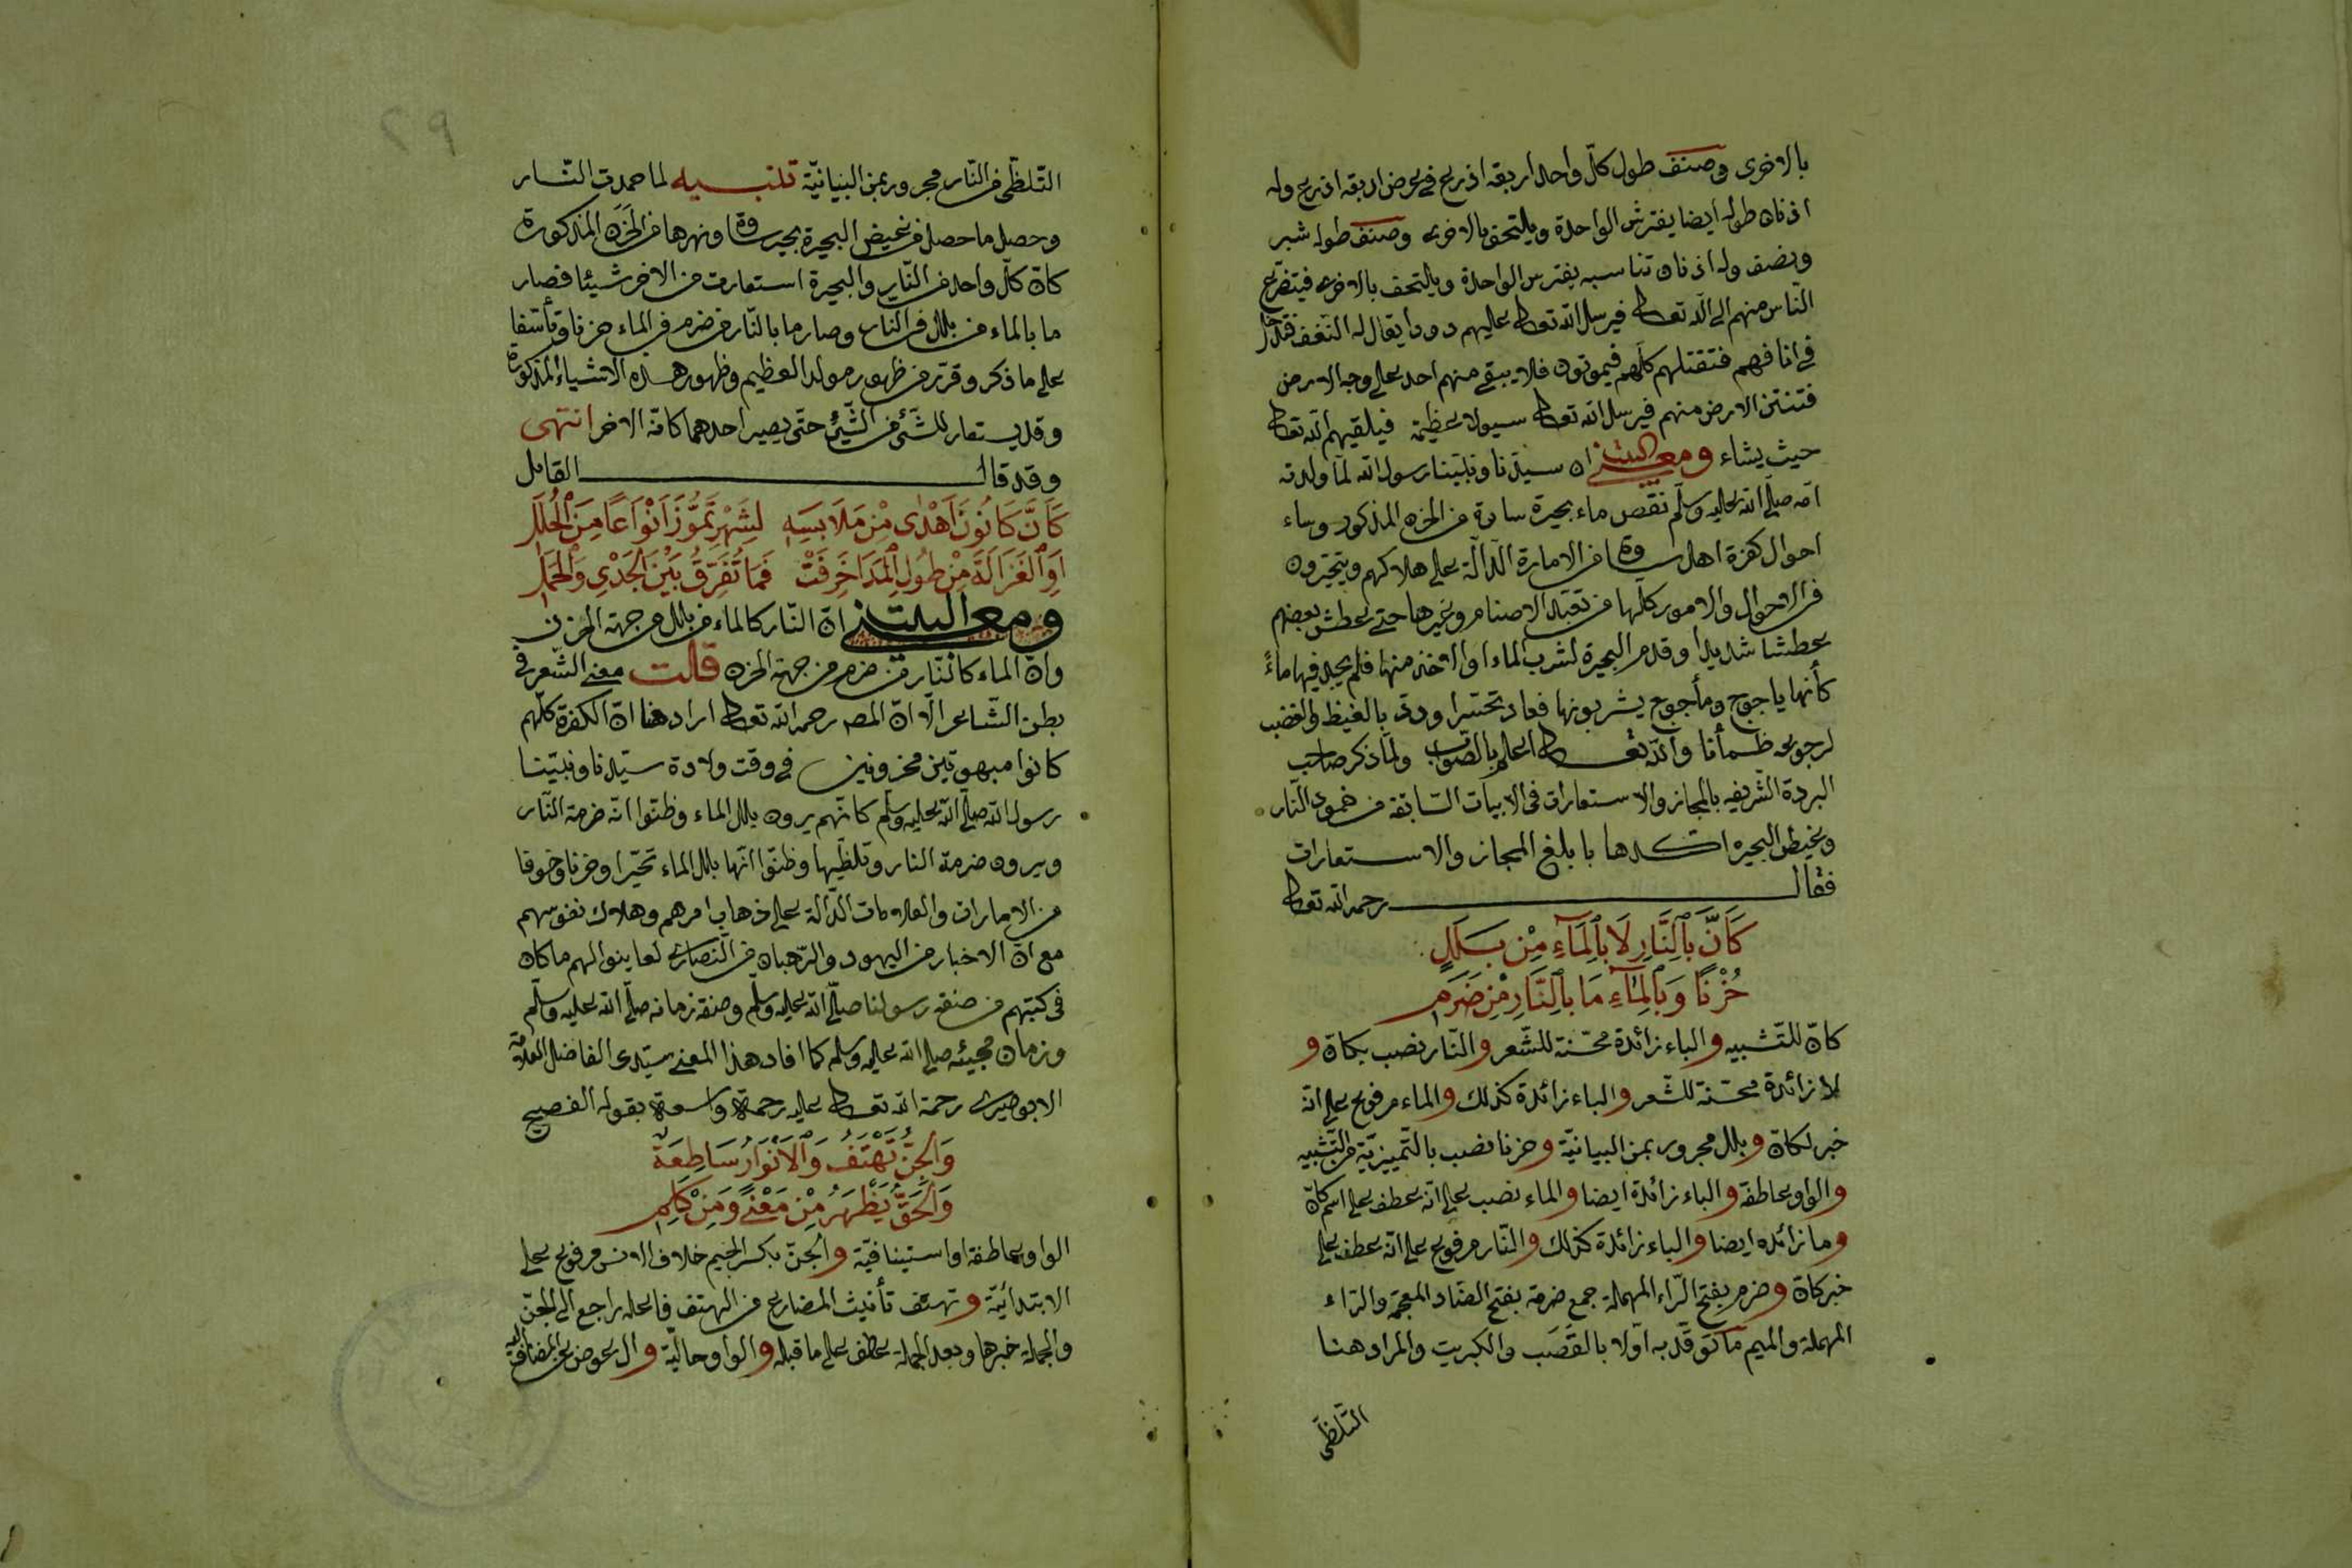 بالاخرى وصنف طول كلّ واحد اربعة اذرع في عرض اربعة اذرع وله
اذنان طوله ايضا يفترش الواحدة ويلتحق بالاخرى وصنف طوله شبر
ونصف وله اذنان تناسبه يفترس الواحدة ويلتحف بالاخرى فيتضرّع
النّاس منهم الى الله تعالى فيرسل الله تعالى عليهم دودا يقال له النغف
في انافهم فتقتلهم كلّهم فيموتون فلا يبقى منهم احد على وجه الارض
فتنتن الارض منهم فيرسل الله تعالى سيولا عظيمة فيلقيهم الله تعالى
حيث يشاء ومعنى البيت ان سيّدنا ونبيّنا رسول الله لمّا ولدته
امّه صلّى الله عليه وسلّم نقص ماء بحيرة ساوة من الحزن المذكور وساء
احوال كفرة اهل ساوة من الامارة الدّالّة على هلاكهم ويتحيّرون
في الاحوال والامور كلّها من تقبّل الاصنام وغيرها حتّى عطش بعضهم
عطشا شديدا وقدم البحيرة لشرب الماء او الاخذ منها فلم يجد فيها ماءً
كأنّها ياجوج ومأجوج يشربونها فعاد تحتسرا وردّ بالغيظ والغضب
لرجوعه ظمأنا والله تعالى اعلم بالصّواب ولمّا ذكر صاحب
البردة الشّريفه بالمجاز والاستعارات فى الابيات السّابقة من خمود النّار
وغيض البحيره اكّدها بابلغ المجاز والاستعارات
فقال رحمه الله تعالى
كَأَنَّ بِالنَّارِ لَا بِالْمَآءِ مِنْ بَلَلٍ
حُزْنًا وَبِالْمَآءِ مَا بِالنَّارِ مِنْ ضَرَمِ
كانّ للتّشبيه والباء زائدة محسّنة للشّعر والنّار نصب بكانّ و
لا زائدة محسّنة للشّعر والباء زائدة كذلك والماء مرفوع على انّه
خبر لكانّ وبلل مجرور بمن البيانيّة وحزنا نصب بالتّمييزيّة من التّشبيه
والواو عاطفة والباء زائدة ايضا والماء نصب على انّه عطف على اسم كانّ
وما زائده ايضا والباء زائدة كذلك والنّار مرفوع على انّه عطف على
خبر كانّ وضرم بفتح الرّاء المهملة جمع ضرمة بفتح الضّاد المعجمة والرّاء
المهملة والميم ما توقّد به اوّلا بالقصب والكبريت والمراد هنا
التّلظّى
٢٩
التّلظّى من النّار مجرور بمن البيانيّة تنبيه لما خمدت النّار
وحصل ما حصل من غيض البحيرة بحيرة ساوة ونهرها من الحزن المذكورة
كانّ كلّ واحد من النّار والبحيرة استعارت من الاخر شيئا فصار
ما بالماء من بلل فى النّار وصار ما بالنّار من ضرم فى الماء حزنا وتأسّفا
على ما ذكر وقرّر من ظهور مولد العظيم وظهور هذه الاشياء المذكورة
وقد يستعار للشّئ من الشّئ حتّى يصير احدهما كانّه الاخر انتهى
وقد قال القائل
كَأَنَّ كَانُونَ اَهْدٰى مِنْ مَلَابِسِهِ لِشَهْرِ تَمُّوزَ اَنْوَاعًا مِنَ الْحُلَلِ
اَوِ الْغَزَالَةَ مِنْ طُولِ الْمَدَا خَرِفَتْ فَمَا تُفَرِّقُ بَيْنَ الْجَدْىِ وَالْحَمَلِ
ومعنى البيت انّ النّار كالماء من بلل من جهة الحزن
وانّ الماء كالنّار من ضرم من جهة الحزن قالت معنى الشّعر فى
بطن الشّاعر الّا انّ المص رحمه الله تعالى اراد هنا انّ الكفرة كلّهم
كانوا مبهوتين محزونين فى وقت ولادة سيّدنا ونبيّنا
رسول الله صلّى الله عليه وسلّم كانّهم يرون بلل الماء وظنّوا انّه ضرمة النّار
ويرون ضرمة النار وتلظّيها وظنّوا انّها بلل الماء تحيّرا وحزنا وخوفا
من الامارات والعلامات الدّالّة على ذهاب امرهم وهلاك نفوسهم
مع انّ الاخبار من اليهود والرّهبان من النّصارى لعاينوا لهم ما كان
فى كتبهم من صنفة رسولنا صلّى الله عليه وسلّم وصنفة زمانه صلّى الله عليه وسلّم
وزمان مجيئه صلى الله عليه وسلم كما افاد هذا المعنى سيّدى الفاضل العلّامة
الابوصيرى رحمة الله تعالى عليه رحمة واسعة بقوله الفصيح
وَالْجِنُّ تَهْتِفُ وَالْاَنْوَارُ سَاطِعَةٌ
وَالْحَقُّ يَظْهَرُ مِنْ مَعْنًى وَمِنْ كَلِمِ
الواو عاطفة او استينافيّة والجنّ بكسر الجيم خلاف الانس مرفوع على
الابتدائيّة وتهتف تأنيث المضارع من الهتف فاعله راجع الى الجنّ
والجملة خبرها وبعد الجملة عطف على ما قبله والواو حاليّة وال عوض عن المضاف اليه